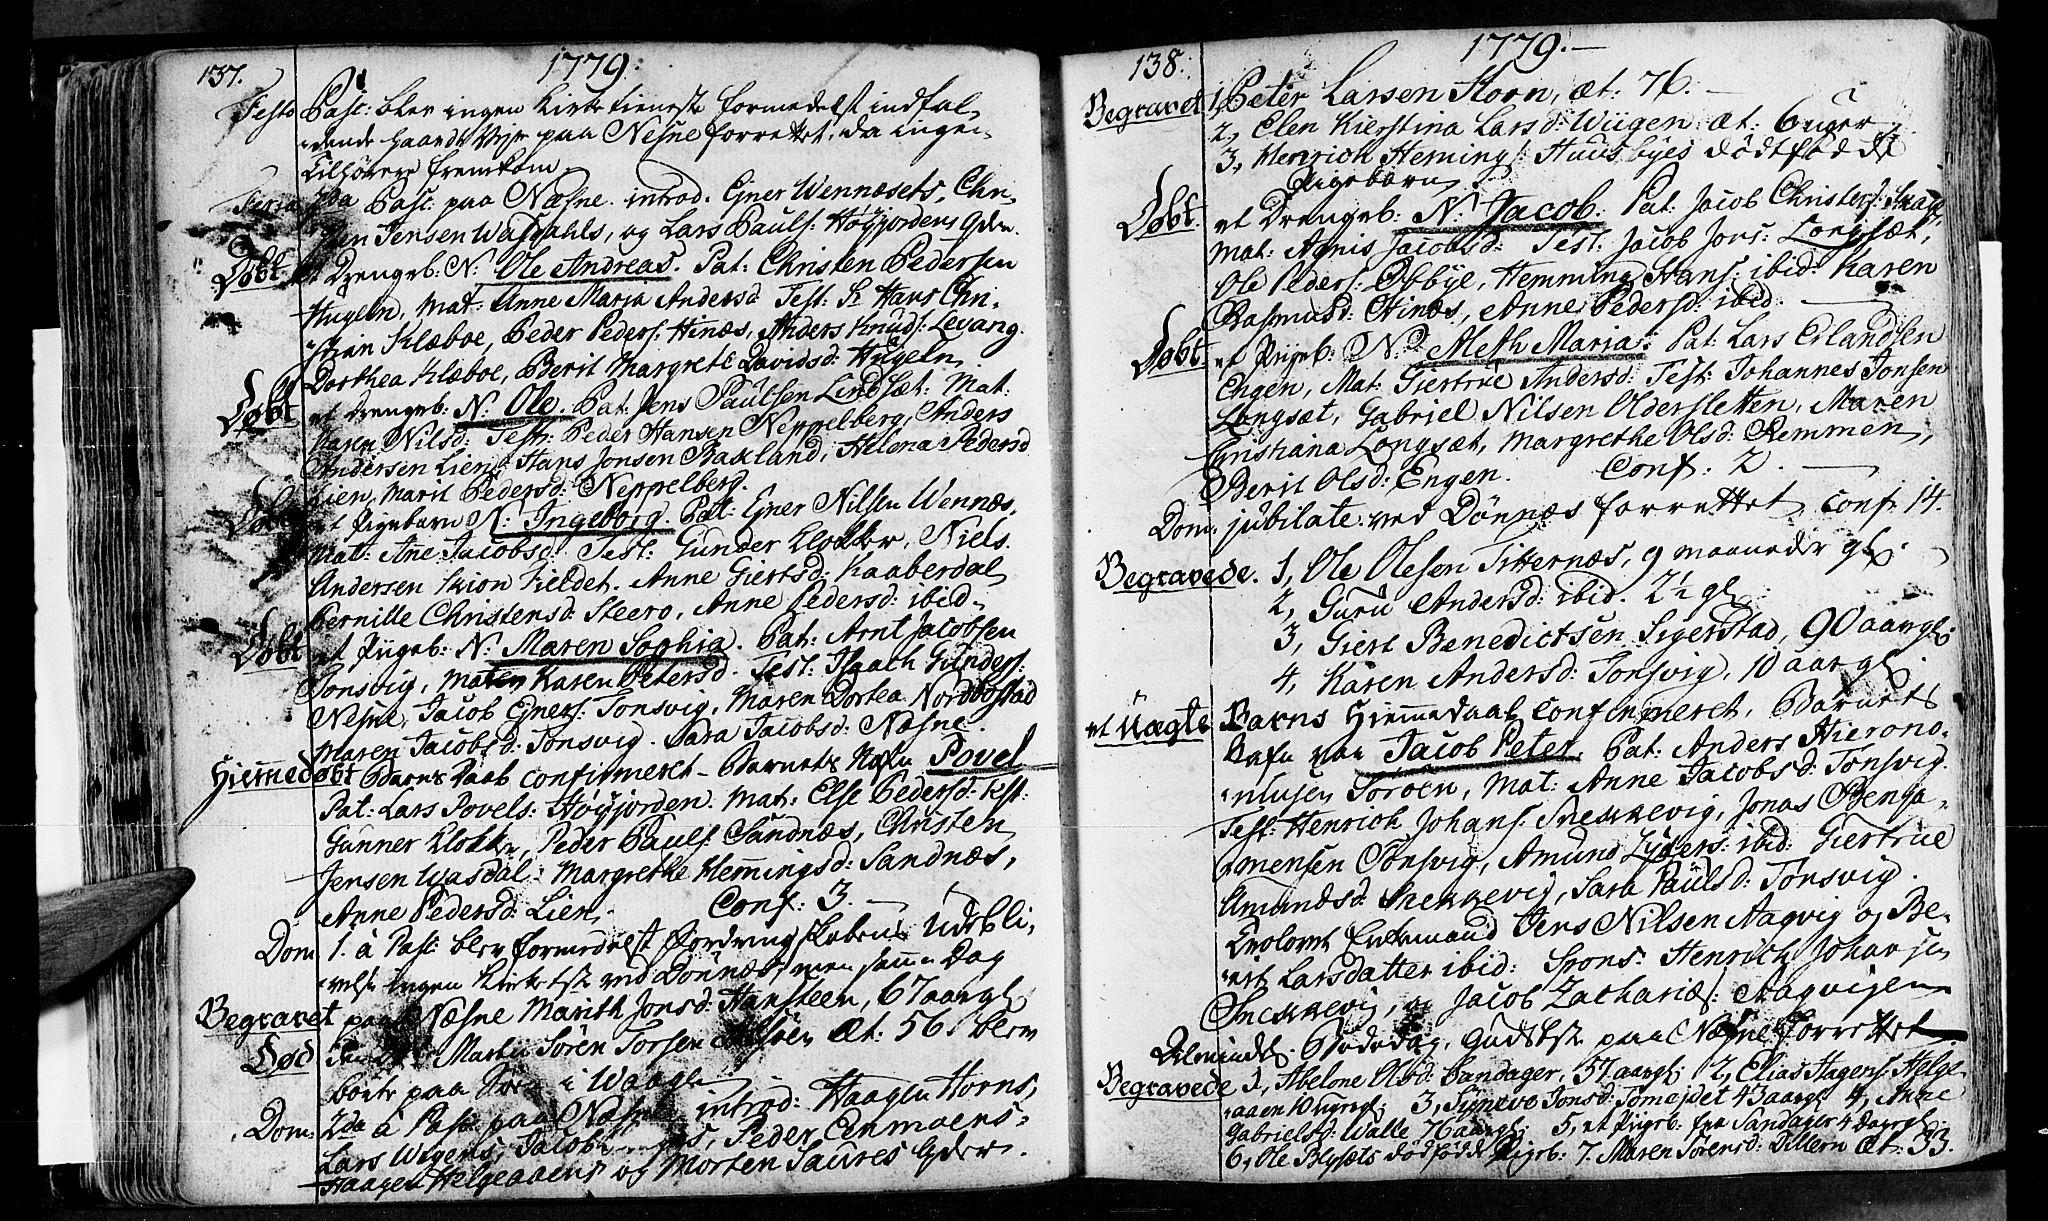 137.
1779.
Festo Pasc: blev ingen Kirketieneste formedelst indfal-
dende haardt Vejr paa Nesne forrettet, da ingen
Tilhörere fremkom
Feria 2da Pasc: paa Næsne. introd. Ejner Wennæsets, Chri-
sten Jensen Wasdahls, og Lars Pauls: Høyjordens Qder.
Døbt et Drengeb: N: Ole Andreas. Pat: Christen Pedersen
Hugeln, Mat: Anne Maria Andersd Test: Hr Hans Chri-
stian Klæboe, Peder Peders: Hinæs, Anders Knuds: Levang
Dorthea Klæboe, Berit Margrete Davidsd: Hugeln
Døbt et Drengeb: N: Ole. Pat: Jens Paulsen Lindsæt: Mat:
Karen Nilsd: Test: Peder Hansen Neppelberg, Anders
Andersen Lien, Hans Jonsen Baxland, Helena Pedersd
Lien, Marit Pedersd: Neppelberg.
Døbt et Pigebarn N: Ingeborg Pat: Ejner Nilsen Wennæs,
Mat: Ane Jacobsd: Test: Gunder Klokker, Niels
Andersen Kieldet. Anne Giertsd: Kaaberdal
Pernille Christensd: Steero, Anne Pedersd: ibid.
Døbt et Pigeb: N: Maren Sophia. Pat: Arnt Jacobsen
Tonsvig, Mater Karen Petersd. Test: Isaach Gunders:
Nesne, Jacob Ejners: Tonsvig, Maren Dortea Nordbostad
Maren Jacobsd: Tonsvig. Sara Jacobsd: Næsne.
Hiemedøbt Barns Daab confirmeret - Barnets Nafn Povel
Pat: Lars Povels: Høyjorden. Mat: Else Pedersd: Test:
Gunner Klokker, Peder Pauls: Sandnæs, Christen
Jensen Wasdal. Margrethe Hemingsd: Sandnæs,
Anne Pedersd: Lien. Conf: 3.
Dom. 1. à Pasc: blev formedelst udebli-
velse ingen Kirketst ved Dönnæs, men samme Dag
Begravet paa Næsne Marith Jonsd: Hansteen, 67 aar gl
Død Martii Sören Torsen Æt: 56. blev
borte paa i Waagen
Dom: 2da à Pasc: paa Næsne introd: Haagen Horns,
Lars Wigens, Jacob Peder Enmoens-
Haagen Helgeaaens og Morten Saures Qder.
138.
1779.
Begravet 1, Peter Larsen Horn, æt: 76.
2, Elen Kierstina Larsd: Wiigen æt: 6 uger
3, Henrich Hemings: Huusbyes dödfödde
Pigebarn
Døbt et Drengeb: N: Jacob. Pat: Jacob Christers:
Mat: Agnis Jacobsd: Test: Jacob Jons: Longsæt,
Ole Peders: Opbye, Hemming Hans: ibid: Karen
Rasmusd: Hinæs, Anne Pedersd: ibid.
Døbt et Pigeb: N: Meth Maria: Pat: Lars Erlandsen
Engen, Mat: Giertrue Andersd: Test: Johannes Jonsen
Longsæt, Gabriel Nilsen Oldersletten, Maren
Cristiana Longsæt, Margrethe Olsd: Remmen,
Berit Olsd: Engen. Conf: 2.
Dom: jubilate ved Dönnæs forrettet, conf: 14.
Begravede. 1, Ole Olesen Titternæs, 9 maaneder gl.
2, Guru Andersd: ibid. 2½ gl.
3, Giert Benedictsen Sigerstad, 90 aar gl.
4, Karen Andersd: Tonsvig, 10 aar gl
et Uægte Barns Hiemmedaab confirmeret, Barnets
Nafn var Jacob Peter. Pat: Anders Hierono-
Mat: Anne Jacobsd: Tonsvig
Test: Henrich Johans: Snekkevig, Jonas Benja-
mensen Tonsvig, Amund ibid: Giertrue
Amundsd: Snekkevig, Sara Paulsd: Tonsvig.
Trolovet Enkemand Jens Nilsen Aagvig og Be-
rit Larsdatter ibid: Spons: Henrich Johansen
Snekkevig, og Jacob Zacharies: Aagvigen
Almindl. Bededag, Gudstst paa Næsne forrettet
Begravede 1, Abelone Olsd: Sandager, 57 aar gl: 2, Elias Hagens: Helge-
aaen 10 uger gl; 3, Syneve Jonsd: Tomejdet 43 aar gl 4, Anne
Gabrielsd: Walle 76 aar gl; 5, et Pigeb: fra Sandager 4 Dage gl
6, Ole Blysets dödfödde Pigeb: 7. Maren Sörensd: Dillern Æt: 33.